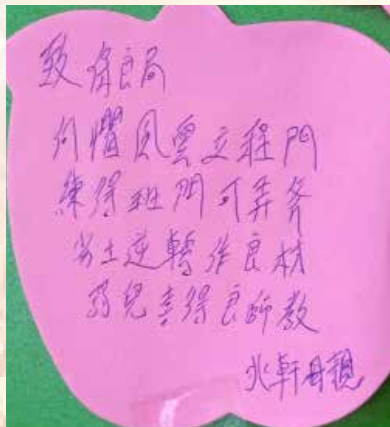 致 保良局
何懼風雲立程門
練得班門可弄斧
劣土逆轉作良材
弱兒幸得良師教
兆軒母親